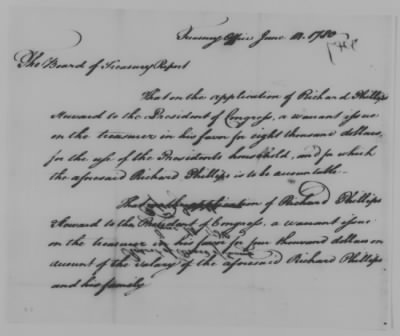 Treasury Office June 12. 1780
The Board of Treasury Report
That on the application of Richard Phillips
Steward to the President of Congress, a warrant issue
on the treasurer in his favor for eight thousand dollars,
for the use of the Presidents household, and for which
the aforesaid Richard Phillips is to be accountable.
That on the application of Richard Phillips
Steward to the President of Congress, a warrant issue
on the treasurer in his favor for four thousand dollars on
account of the salary of the aforesaid Richard Phillips
and his family